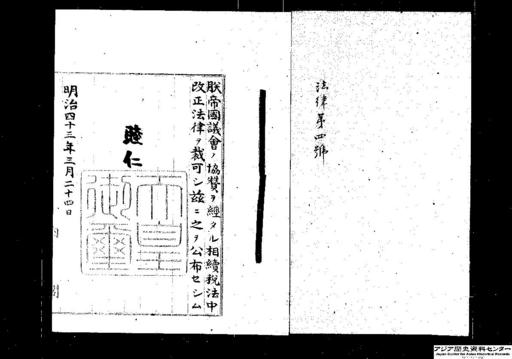 法律第四號
朕帝國議會ノ協贊ヲ經タル相續税法中
改正法律ヲ裁可シ茲ニ之ヲ公布セシム
睦仁
天皇御璽
明治四十三年三月二十四日
アジア歴史資料センター
Japan Center for Asian Historical Records